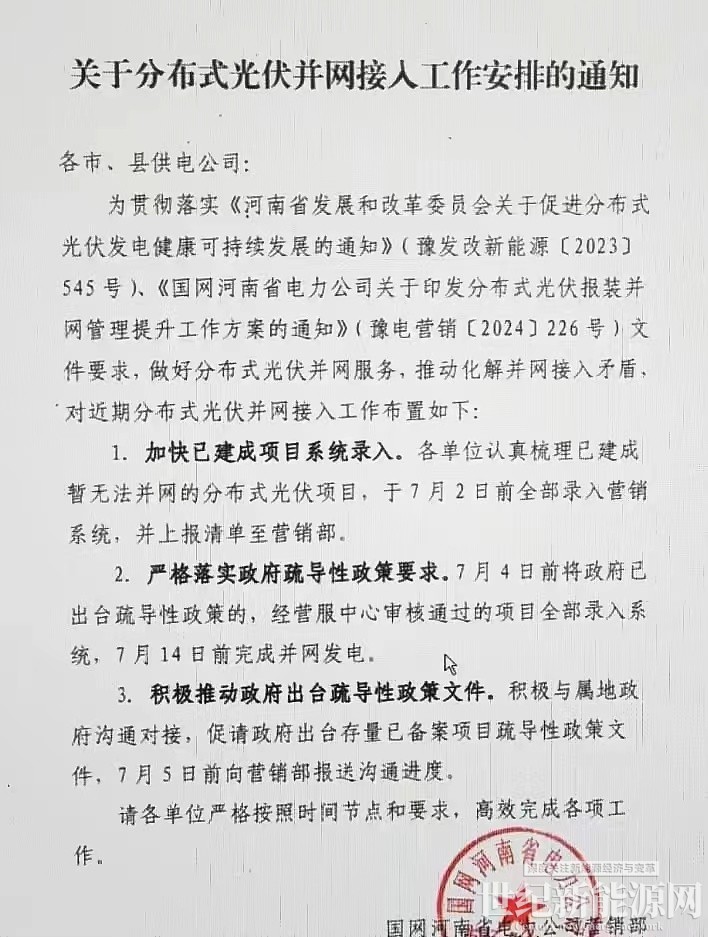 关于分布式光伏并网接入工作安排的通知
各市、县供电公司：
为贯彻落实《河南省发展和改革委员会关于促进分布式
光伏发电健康可持续发展的通知》（豫发改新能源〔2023〕
545号）、《国网河南省电力公司关于印发分布式光伏报装并
网管理提升工作方案的通知》（豫电营销〔2024〕226号）文
件要求，做好分布式光伏并网服务，推动化解并网接入矛盾，
对近期分布式光伏并网接入工作布置如下：
1. 加快已建成项目系统录入。各单位认真梳理已建成
暂无法并网的分布式光伏项目，于7月2日前全部录入营销
系统，并上报清单至营销部。
2. 严格落实政府疏导性政策要求。7月4日前将政府已
出台疏导性政策的，经营服中心审核通过的项目全部录入系
统，7月14日前完成并网发电。
3. 积极推动政府出台疏导性政策文件。积极与属地政
府沟通对接，促请政府出台存量已备案项目疏导性政策文
件，7月5日前向营销部报送沟通进度。
请各单位严格按照时间节点和要求，高效完成各项工
作。
国网河南省电力公司
深度关注新能源经济与变革
世纪新能源网
国网河南省电力公司营销部